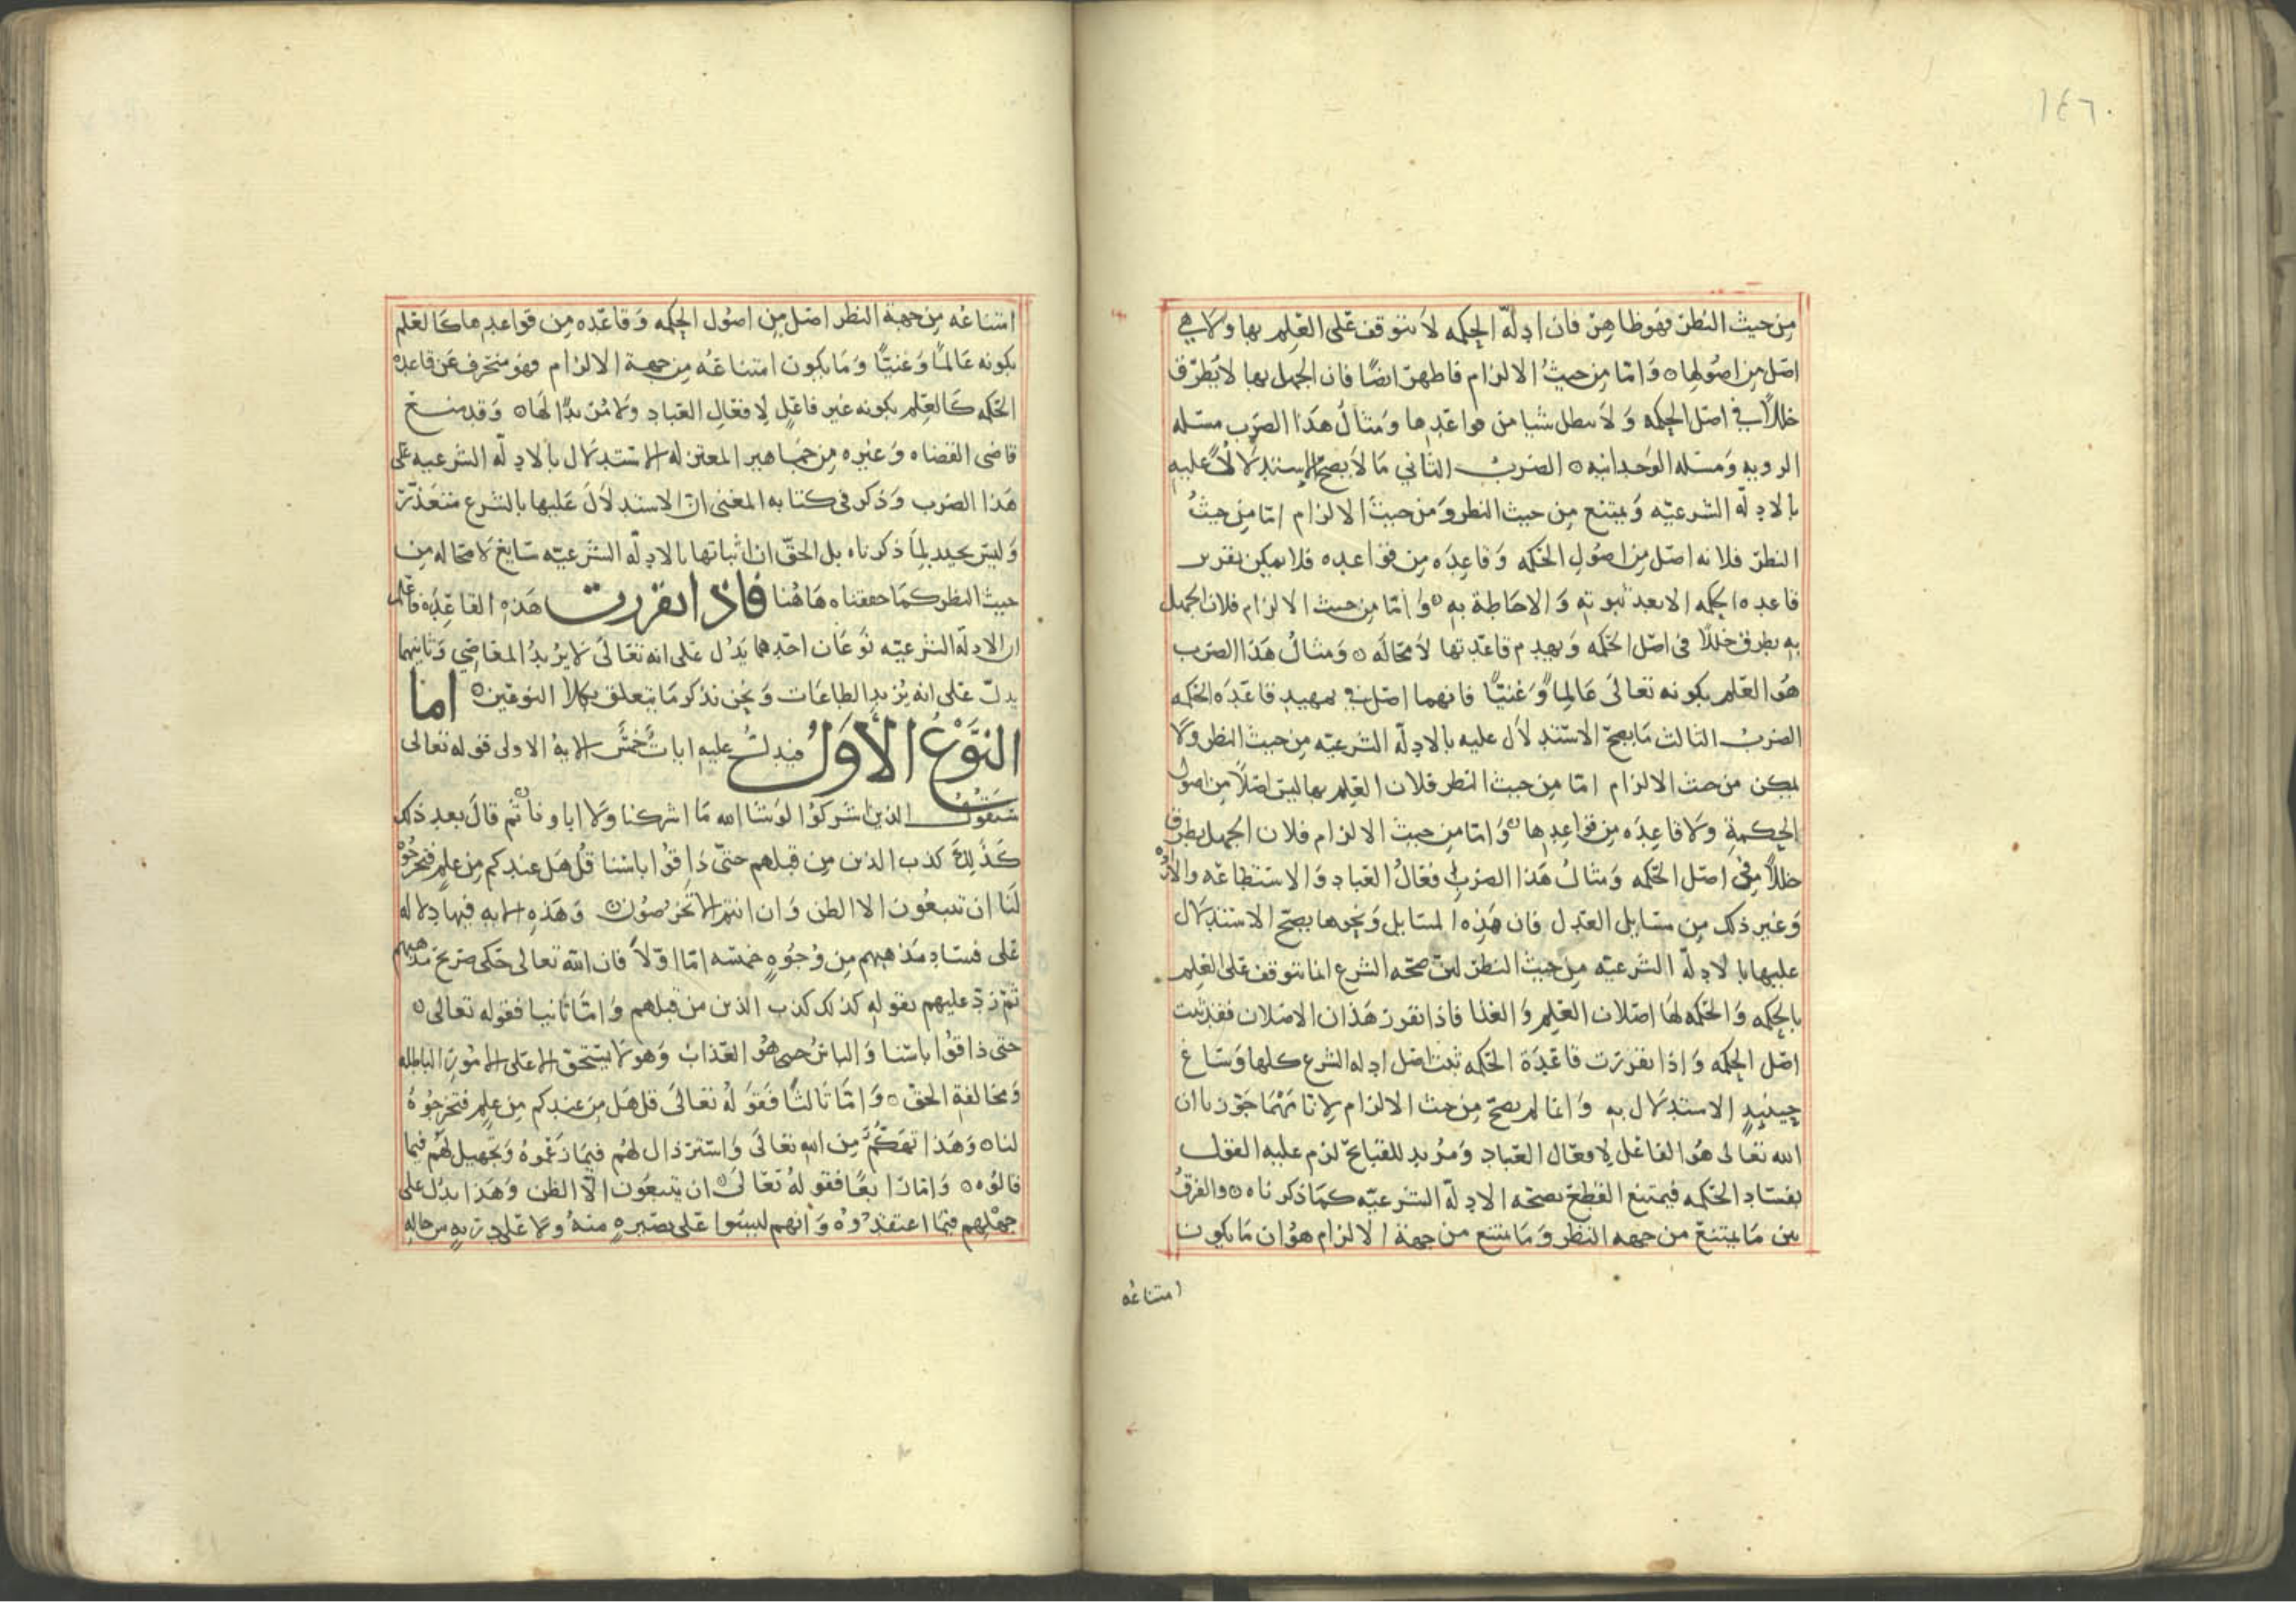 ١٤٦
من حيث النظر فهو ظاهر فان ادلة الحكمه لا تتوقف على العلم بها ولا هي
اصل من اصولها ه وَامّا من حيثُ الالزام فاظهر ايضًا فان الجهل بها لا يطرّق
خللاً في اصل الحكمه وَلا يبطل شيا من قواعدها ومثالُ هذا الضرب مسئله
الرويه وَمسئله الوَحدانيه ه الضربُ الثاني مَا لا يصحّ الاستدلالُ عليه
بالادلّه الشرعيّه وَيمتنع من حيث النظر وَمن حيث الالزام امّا من حيثُ
النظر فلانه اصل من اصُولِ الحكمه وَقاعِدَه من قواعده فلا يمكن تقرير
قاعده الحكمه الا بعد ثبوته وَالاحَاطة به ه وَامّا من حيث الالزام فلان الجهل
به يطرق خللاً في اصل الحكمه وَيهدم قاعدتها لا محَالَه ه وَمثالُ هذا الضرب
هُوَ العلم بكونه تعالى عَالماً وَغنيًّا فانهما اصل في تمهيد قاعدَه الحكمه
الضربُ الثالث مَا يصحّ الاستدلال عليه بالادلّه الشرعيّه من حيث النظر ولا
يمكن من حيث الالزام امّا من حيث النظر فلان العلم بها ليس اصلاً من اصول
الحكمةِ ولا قاعِدَه من قواعدِها ه وَامّا من حيث الالزام فلان الجهل يطرق
خللاً في اصل الحكمه وَمثالُ هَذا الضرب افعالُ العباد وَالاستطاعَه والاراده
وَغير ذلك من مسَايل العَدل فان هَذِه المسَايل وَنحوها يصحّ الاستدلال
عليها بالادلّه الشرعيّه من حيث النظر لان صحّه الشرع انما تتوقف على العلم
بالحكمه وَالحكمه لهَا اصلان العلم وَالغنا فاذا تقرر هَذان الاصلان فقد ثبت
اصل الحكمه وَاذا تقررت قاعدَة الحكمه ثبت اصل ادله الشرع كلها وَسَاغ
حينئذٍ الاستدلال به وَانما لم يصحّ من حيث الالزام لانا مَهمَا جَوّزنا ان
الله تعالى هُوَ الفاعل لافعال العباد وَمُريد للقبايح لزم عليه القول
بفسَاد الحكمه فيمتنع القطع بصحّه الادلّه الشرعيّه كمَا ذكرناه ه والفرقُ
بين مَا يمتنعُ من جهه النظر وَمَا يمتنع من جهةِ الالزام هوُ ان مَا يكونُ
امتناعُه
امتناعُه من جهة النظر اصل من اصُول الحكمه وَقاعده من قواعدها كالعلم
بكونه عَالماً وَغنيًّا وَمَا يكون امتناعُه من جهة الالزام فهو منحرف عَن قاعدة
الحكمه كالعلم بكونه غير فاعل لافعال العباد ولا مُريدًا لهَا ه وَقد منع
قاضي القضاه وَغيره من جمَاهير المعتزله الاستدلال بالادلّه الشرعيه على
هَذا الضرب وَذكر في كتابه المغني ان الاستدلال عَليها بالشرع متعذّر
وَليس بجيد لما ذكرناه بل الحقّ ان اثباتها بالادلّه الشرعيّه سَايغ لا محَاله من
حيث النظر كمَا حققناه هَاهُنا فاذا تقررت هَذه القاعدَه فاعلم
ان الادلّه الشرعيّه نوعَان احدهما يَدُل على انه تعَالى لا يُريدُ المعَاصي وَثانيهما
يدلّ على انه يُريد الطاعَات وَنحن نذكر مَا يتعلق بكلا النوعَين ه امّا
النَّوعُ الأوّلُ فيدلّ عليه اياتٌ خمسٌ الايةُ الاولى قوله تعالى
سَيَقوُل الذين اشركوُا لو شَا الله مَا اشركنا وَلا اباونا ه ثم قالَ بعد ذلك
كَذلِكَ كذب الذين من قبلهم حتّى ذاقوُا باسَنا قل هَل عندكم من علمٍ فتخرجُوُه
لَنا ان تتبعُون الا الظن وَان انتم الا تخرُصُون ه وَهذه الايه فيها دلاله
على فسَاد مَذهبهم من وُجُوهٍ خمسَه امّا اوّلاً فان الله تعالى حَكى صَريح مذهبهم
ثم رَدّ عليهم بقوله كذلك كذب الذين من قبلهم وَامّا ثانيا فقوله تعالى ه
حتى ذاقوُا باسَنا وَالباسُ هُوُ العَذاب وَهو لا يستحق الا على الامُور الباطله
وَمخالفةِ الحق ه وَامّا ثالثًا فقوَلهُ تعَالى قل هَل من عندكم من علم فتخرجُوُهُ
لنا ه وَهَذا تهَكُّم من الله تعَالى وَاسترذال لهُم فيمَا زعموهُ وَتجهيل لهُم فيما
قالوُه ه وَامّا رَابعًا فقوَلهُ تعَالى ه ان تتبعُون الّا الظن وَهَذا يدُل على
جهلهم فيمَا اعتقدُوُه وَانهم ليسَوا على بصيرهٍ منهُ وَلا على دريهٍ من حاله